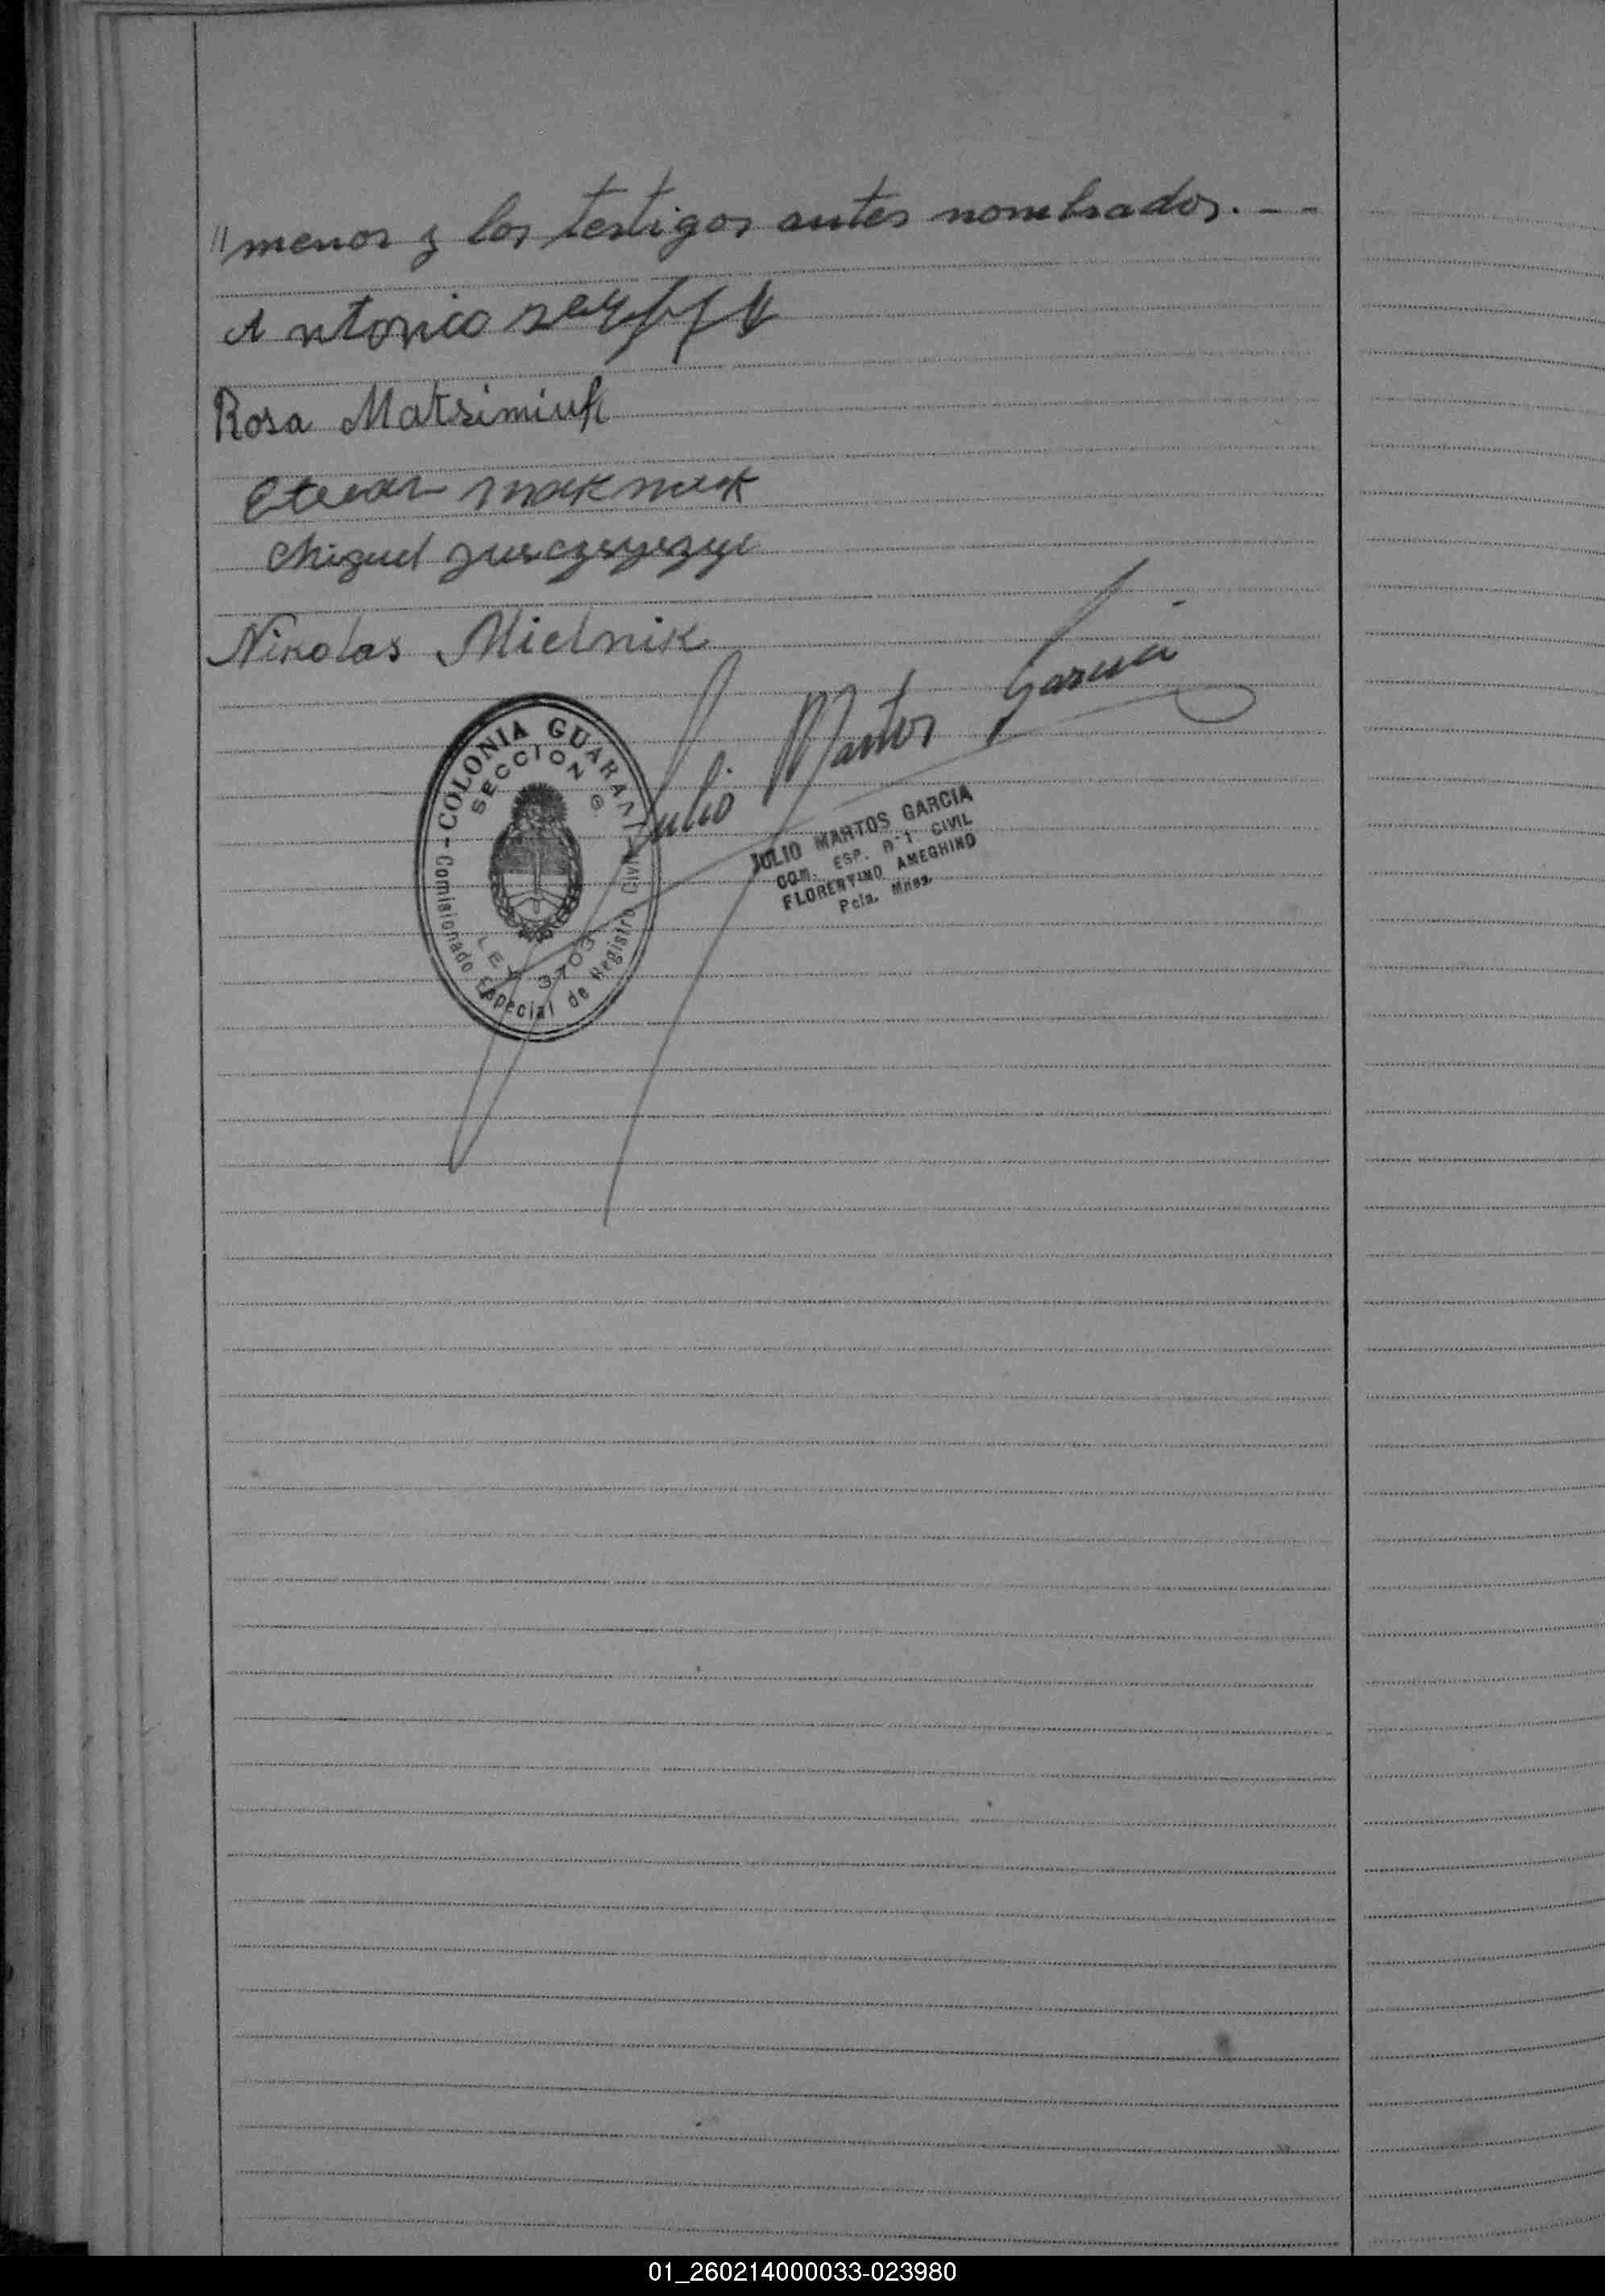 "menor y los testigos antes nombrados. - -
Antonio
Rosa Matsimiuk
Miguel
Nikolas Mielnik
Julio Martos Garcia
COLONIA GUARANI
SECCION G.
LEY 3703
Comisionado Especial de Registro Civil
JULIO MARTOS GARCIA
COM. ESP. R-1. CIVIL
FLORENTINO AMEGHINO
Pcia. Mnes.
01_260214000033-023980